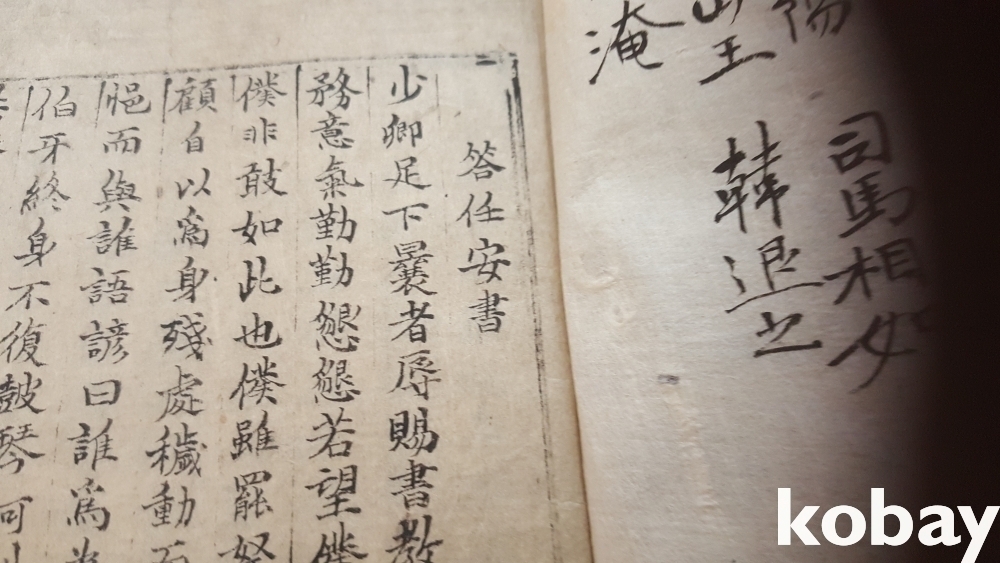 司馬相如
王
韓退之
淹
答任安書
少卿足下曩者辱賜書教
務意氣勤勤懇懇若望僕
僕非敢如此也僕雖罷
顧自以爲身殘處穢動
悒而與誰語諺曰誰爲
伯牙終身不復鼓琴何
kobay